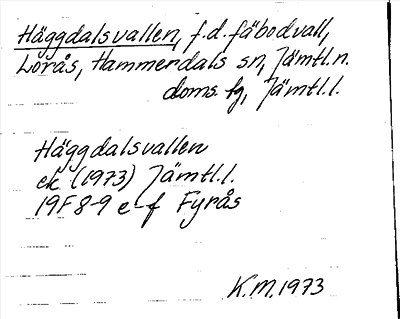 Häggdalsvallen, f.d. fäbodvall,
Lorås, Hammerdals sn, Jämtl.n.
doms. fg, Jämtl.l.
Häggdalsvallen
ek (1973) Jämtl.l.
19F 8-9 e-f Fyrås
K.M. 1973